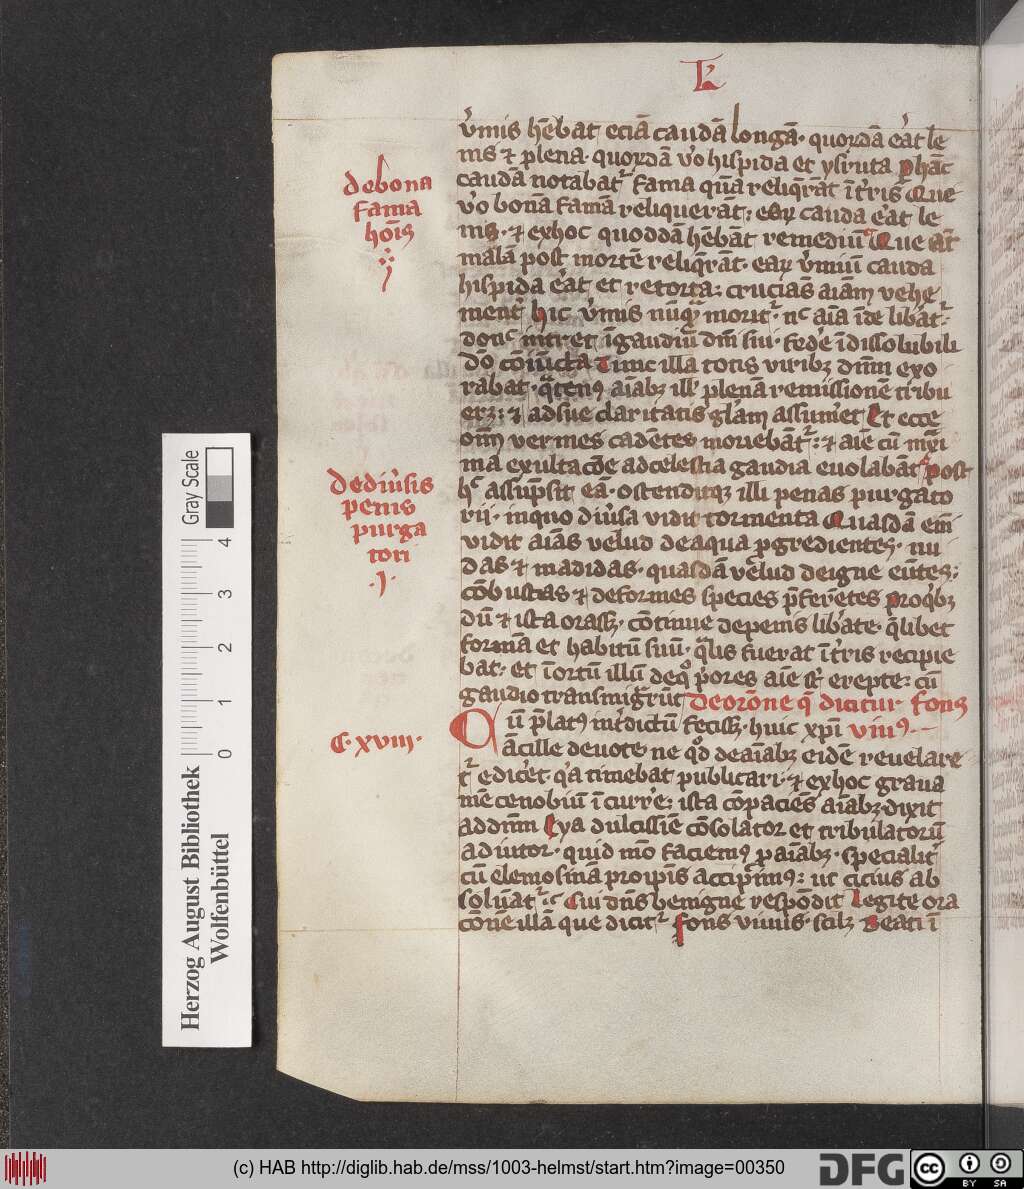 L
v̾mis hēbat eciā caudā longā· quordā eāt le
nis ⁊ plena· quordā v̾o hispida et ysiruta phāc
caudā notabat᷑ fama quā reliqr̄āt ī tr̄is Que
v̾o bonā famā reliquerāt; eoꝝ cauda e̾at le
nis· ⁊ exhoc quoddā hēbāt remediū Que at̄
malā post mortē reliqr̄āt· eaꝝ v̾miū cauda
hispida e̾at et retorta: crucians aīam vehe
ment᷑ hic v̾mis nūqꝫ morit᷑· nc̄ aīa īde libat᷑·
donc̄ intret īgaudiū dn̄i sui· fede̾e īdissolubili
dō cōiūcta Tunc illa totis viribꝫ dn̄m exo
rabat· qͣtenꝰ aīabꝫ ill᷑ plenā remissionē tribu
erꝫ: ⁊ adsue claritatis gl̄am assum̾et Et ecce
om̄ vermes cadētes moriebāt᷑: ⁊ aīe cū maxi
ma exultacōe adcelestia gaudia euolabāt Post
hͨ assūpsit eā· ostenditqꝫ illi penas purgato
rij· inquo diūsa vidit tormenta Quasdā em̄
vidit aīas velud deaqua ꝓgredientes· nu
das ⁊ madidas· quasdā velud deigne eūtes;
cōbustas ⁊ deformes species p̄fer̄etes Proqͥbꝫ
dū ⁊ ista orassꝫ· cōtinue depenis lib̾ate· qͣlibet
formā et habitū suū· qͣlis fuerat ī tr̄is recipie
bat· et īortū illū deqͦ p̄ores aīe sͭ erepte: cū
gaudio transmigr̄ūt Deorōne q̄ dicitur fons
Cū p̄latꝰ int̾dictū fecissꝫ· huic xp̄i viuꝰ·
ācille deuote· ne qͦd deaīabꝫ eidē reuelare
t᷑ edic̾et qͥa timebat publicari· ⁊ exhoc graua
mē cenobiū īcurr̾e: ista cōpaciēs aīabꝫ dixit
addn̄m Eya dulcissīe cōsolator et tribulatorū
adiutor· quid mō faciemꝰ p aīabꝫ· specialit᷑
cū elemosinā proip̄is accip̄imꝰ: ut cicius ab
soluāt᷑ ⁊c̄ Cui dn̄s benigne respōdit Legite ora
cōnē illā que dicit᷑ Fons viuus· scilꝫ Beati ī
debona
fama
hoīs
j
Dediūsis
penis
purga
tori
·j·
C·xviij·
Herzog August Bibliothek
Wolfenbüttel
0 1 2 3 4
Gray Scale
(c) HAB http://diglib.hab.de/mss/1003-helmst/start.htm?image=00350
DFG
cc
BY SA